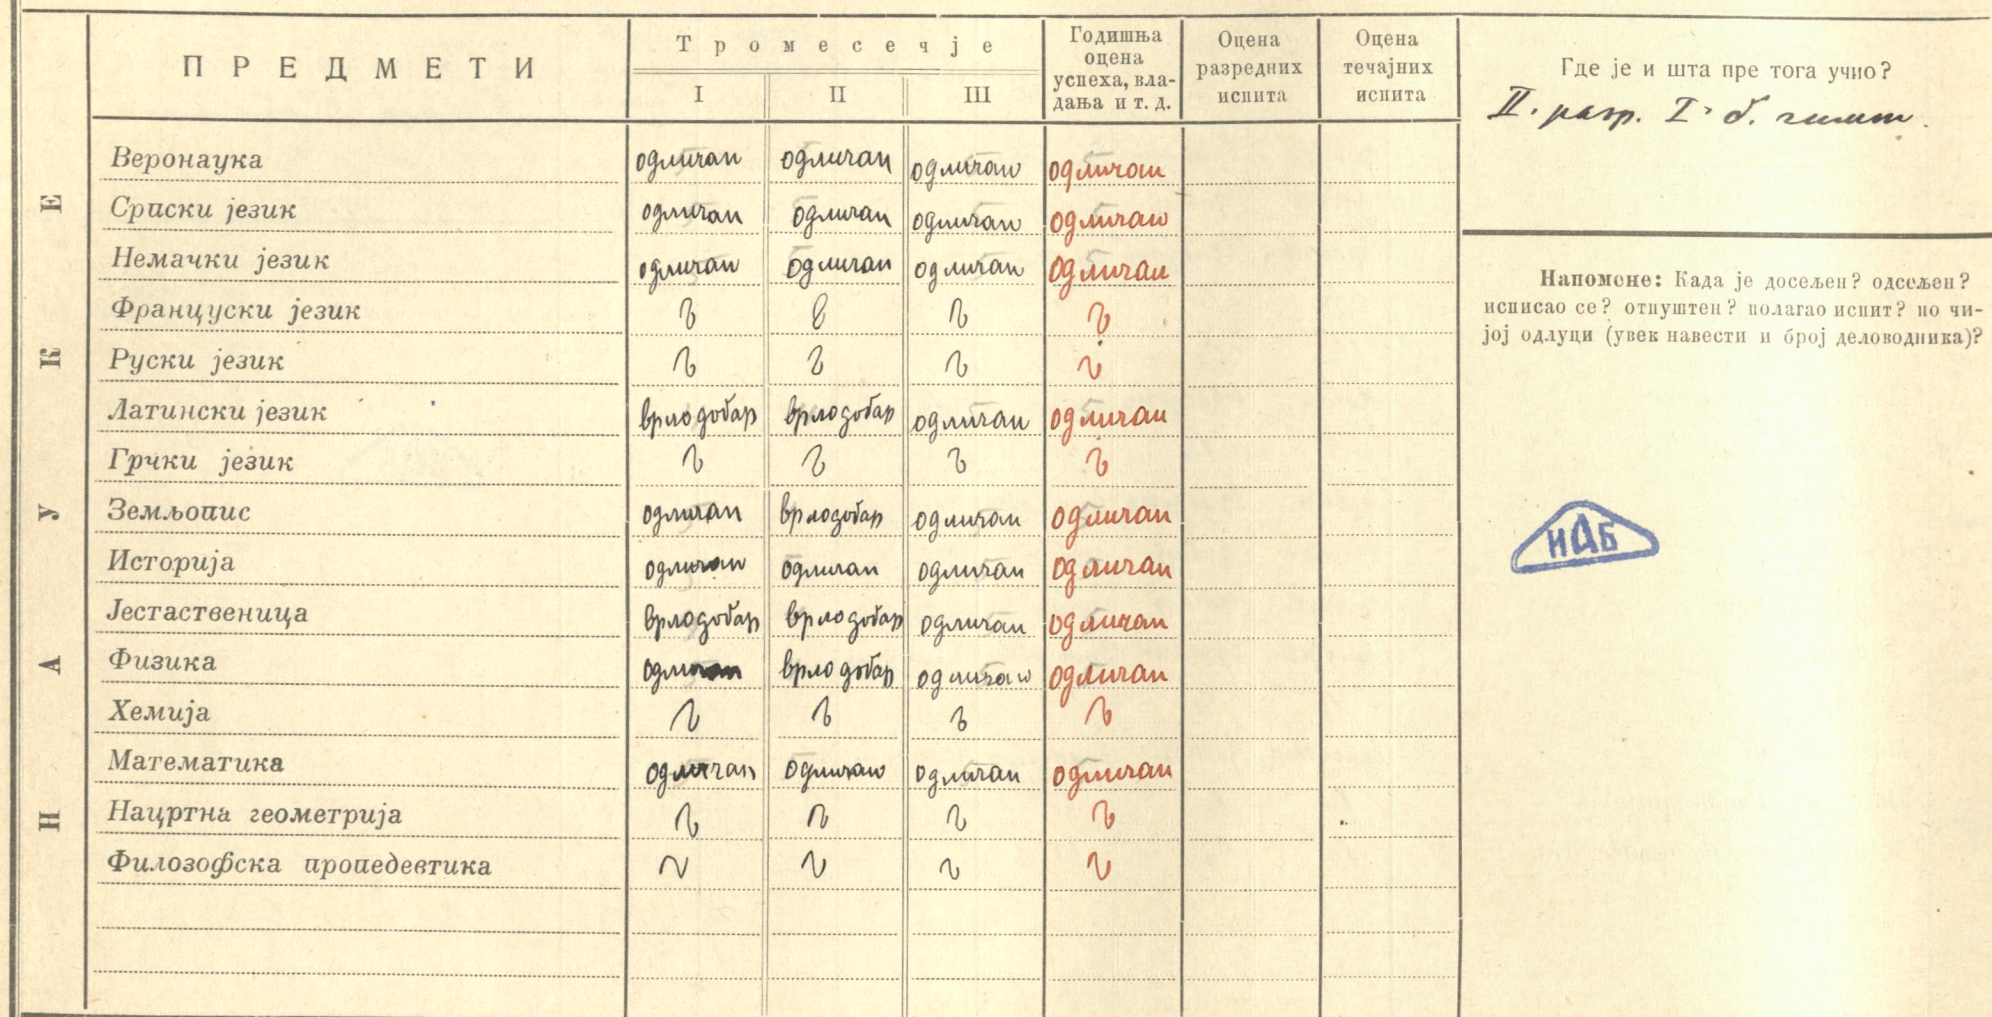 ПРЕДМЕТИ
Тромесечје
I II III
Годишња оцена успеха, вла-дања и т. д.
Оцена разредних испита
Оцена течајних испита
НАУКЕ
Веронаука одличан одличан одличан одличан
Српски језик одличан одличан одличан одличан
Немачки језик одличан одличан одличан одличан
Француски језик
Руски језик
Латински језик врлодобар врлодобар одличан одличан
Грчки језик
Земљопис одличан врлодобар одличан одличан
Историја одличан одличан одличан одличан
Јестаственица врлодобар врлодобар одличан одличан
Физика одличан врлодобар одличан одличан
Хемија
Математика одличан одличан одличан одличан
Нацртна геометрија
Филозофска пропедевтика
Где је и шта пре тога учио?
II. разр. I б.
Напомене: Када је досељен? одсељен?
исписао се? отпуштен? полагао испит? по чи-
јој одлуци (увек навести и број деловодника)?
ИАБ